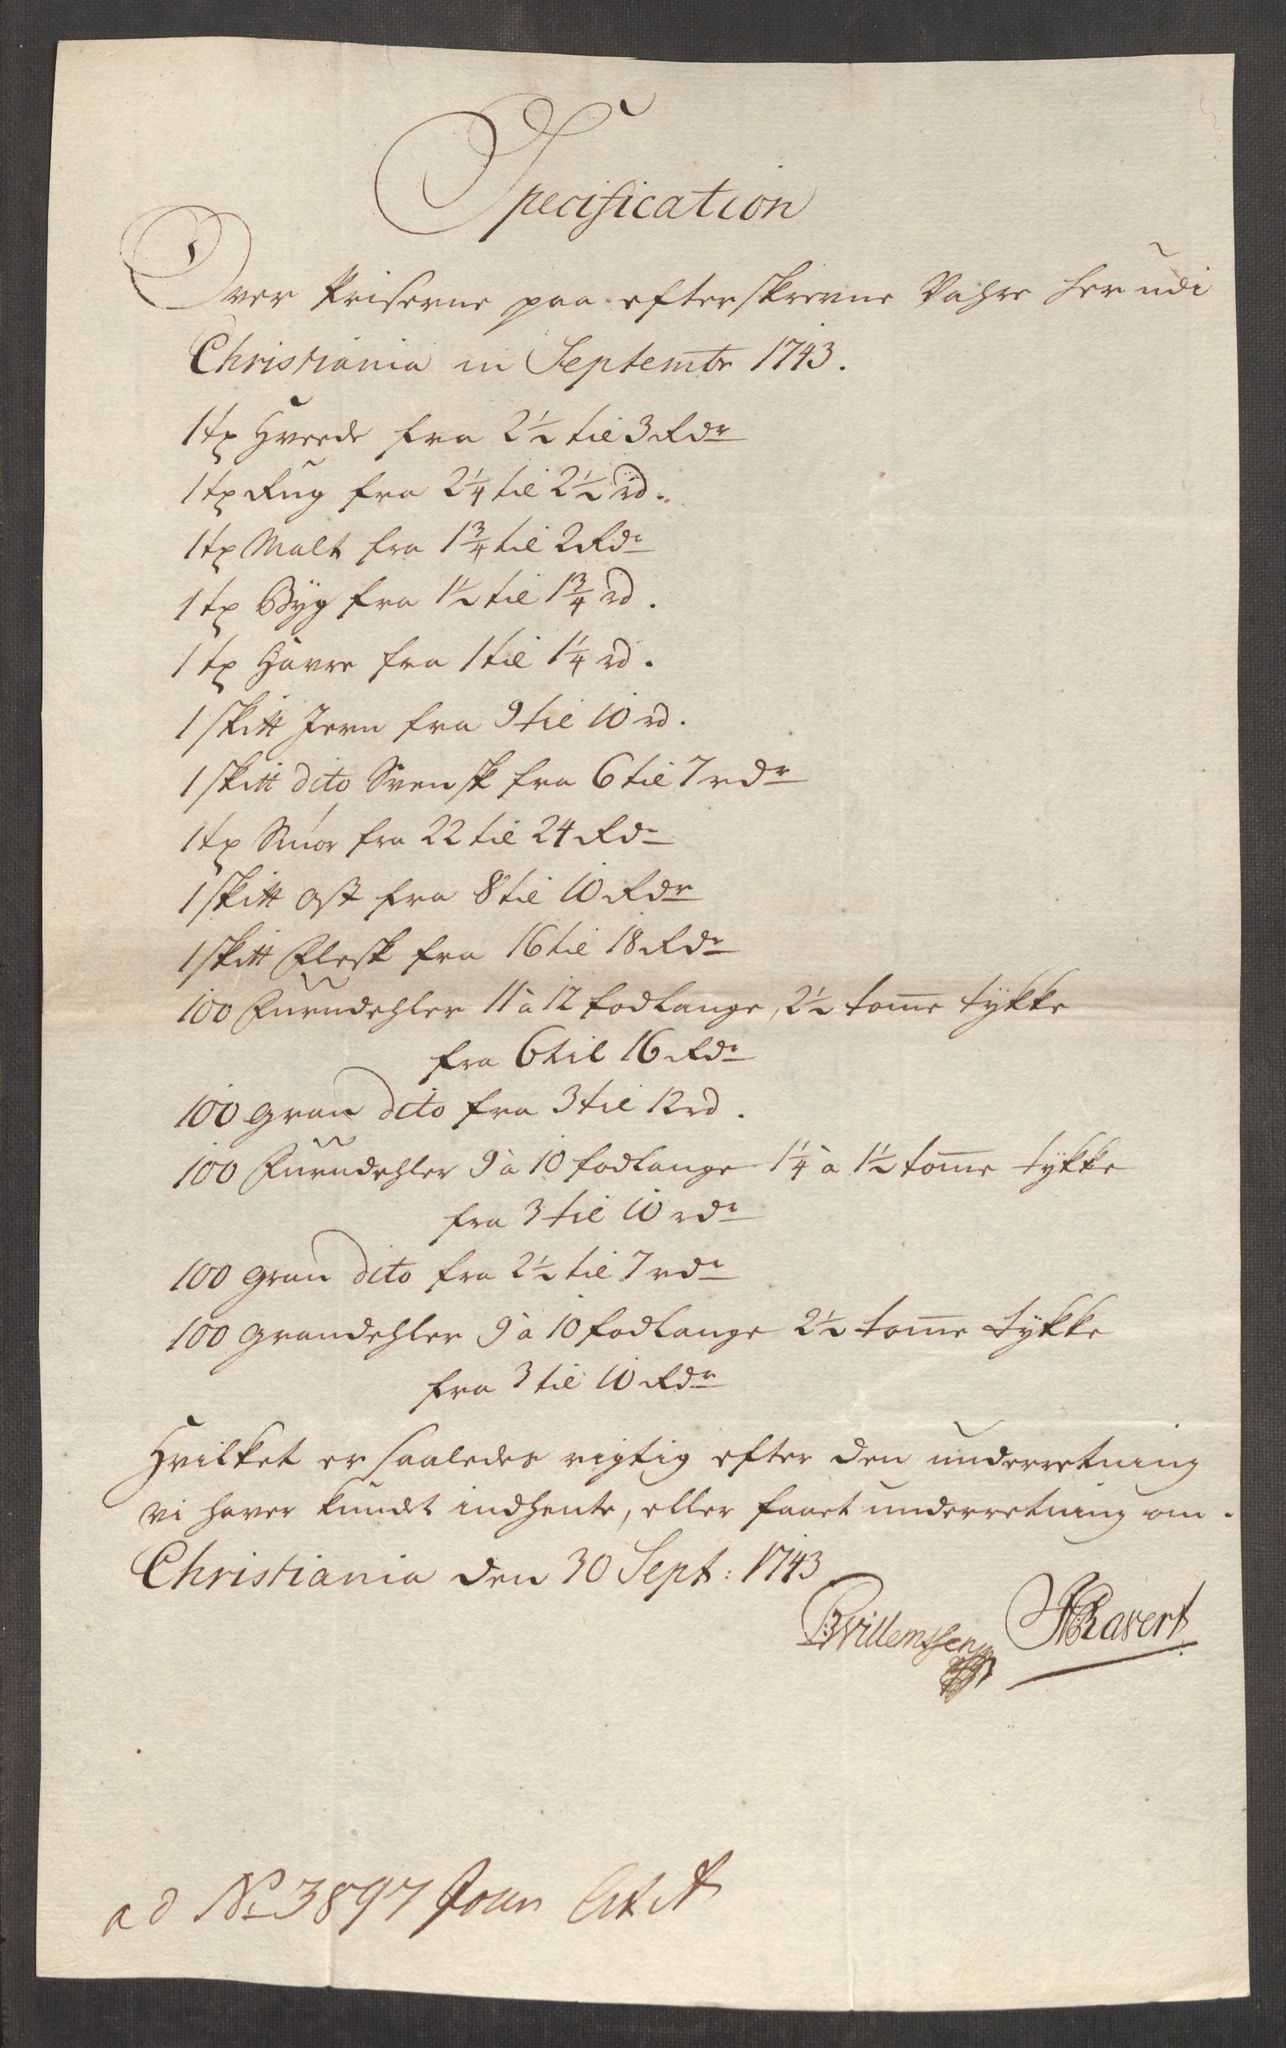 Specification
Over Priserne paa efterskrevne Vahre her udi
Christiania in Septembr 1743.
1 tp Hvede fra 2½ til 3 Rdr
1 tp Rug fra 2¼ til 2½ rd.
1 tp Malt fra 1¾ til 2 Rdr
1 tp Byg fra 1½ til 1¾ rd.
1 tp Havre fra 1 til 1¼ rd.
1 skitt Jern fra 9 til 10 rd.
1 skitt dito Svensk fra 6 til 7 rdr
1 tp Smør fra 22 til 24 Rdr
1 skitt Ost fra 8 til 10 Rdr
1 skitt Flesk fra 16 til 18 Rdr
100 Furudehler 11 à 12 fod lange, 2½ tome tykke
fra 6 til 16 Rdr
100 gran dito fra 3 til 12 rd.
100 Furudehler 9 à 10 fod lange 1¼ à 1½ tome tykke
fra 3 til 10 rdr
100 gran dito fra 2½ til 7 rdr
100 grandehler 9 à 10 fod lange 2½ tome tykke
fra 3 til 10 Rdr
Hvilket er saaledes rigtig efter den underretning
vi haver kundt indhente, eller faaet underretning om.
Christiania den 30 Sept: 1743
BWillemssen Ravert
ad No 3897 Jour Lit A